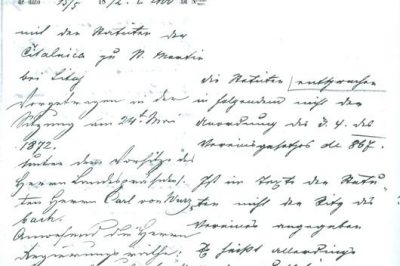 de dato 13/5 1872. Z.
mit den Statuten der
Čitalnica zu St. Martin
bei Litaj
Vorgetragen in der
Sitzung am 24t. Mai
1872.
unter dem Vorsitze des
Herrn Landespräsidenten
Herrn Carl von Wurz-
bach.
Anwesend die Herren
Regierungsräthe:
die Statuten entsprechen
in folgendem nicht der
Anordnung des §. 4. des
Vereinsgesetzes de 867.
Ist im Texte der Statu-
ten nicht der Sitz des
Vereines angegeben
Es heißt allerdings